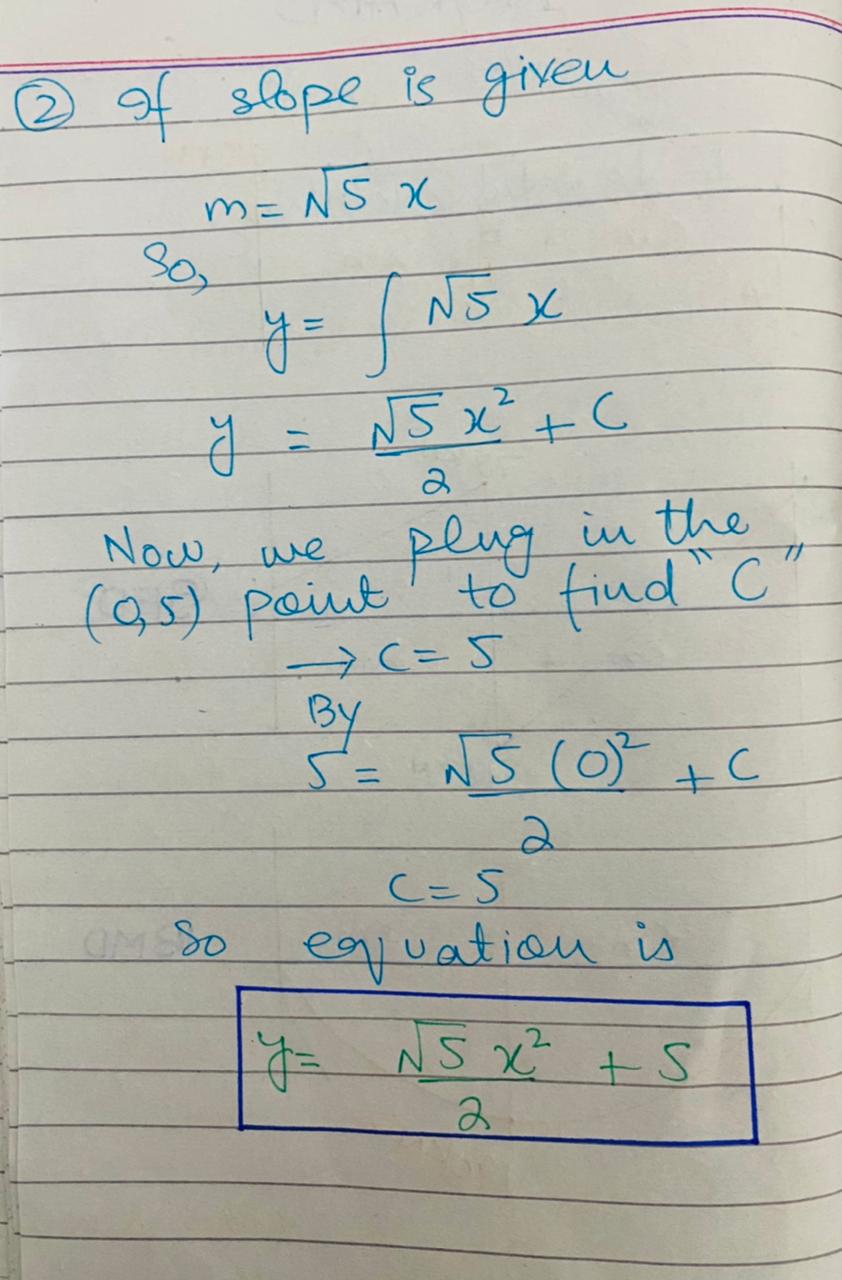 ② If slope is given
m = √5 x
So,
y = ∫ √5 x
y = √5 x² / 2 + C
Now, we plug in the
(0,5) point to find "C"
→ C = 5
By
5 = √5 (0)² / 2 + C
C = 5
So equation is
y = √5 x² / 2 + 5